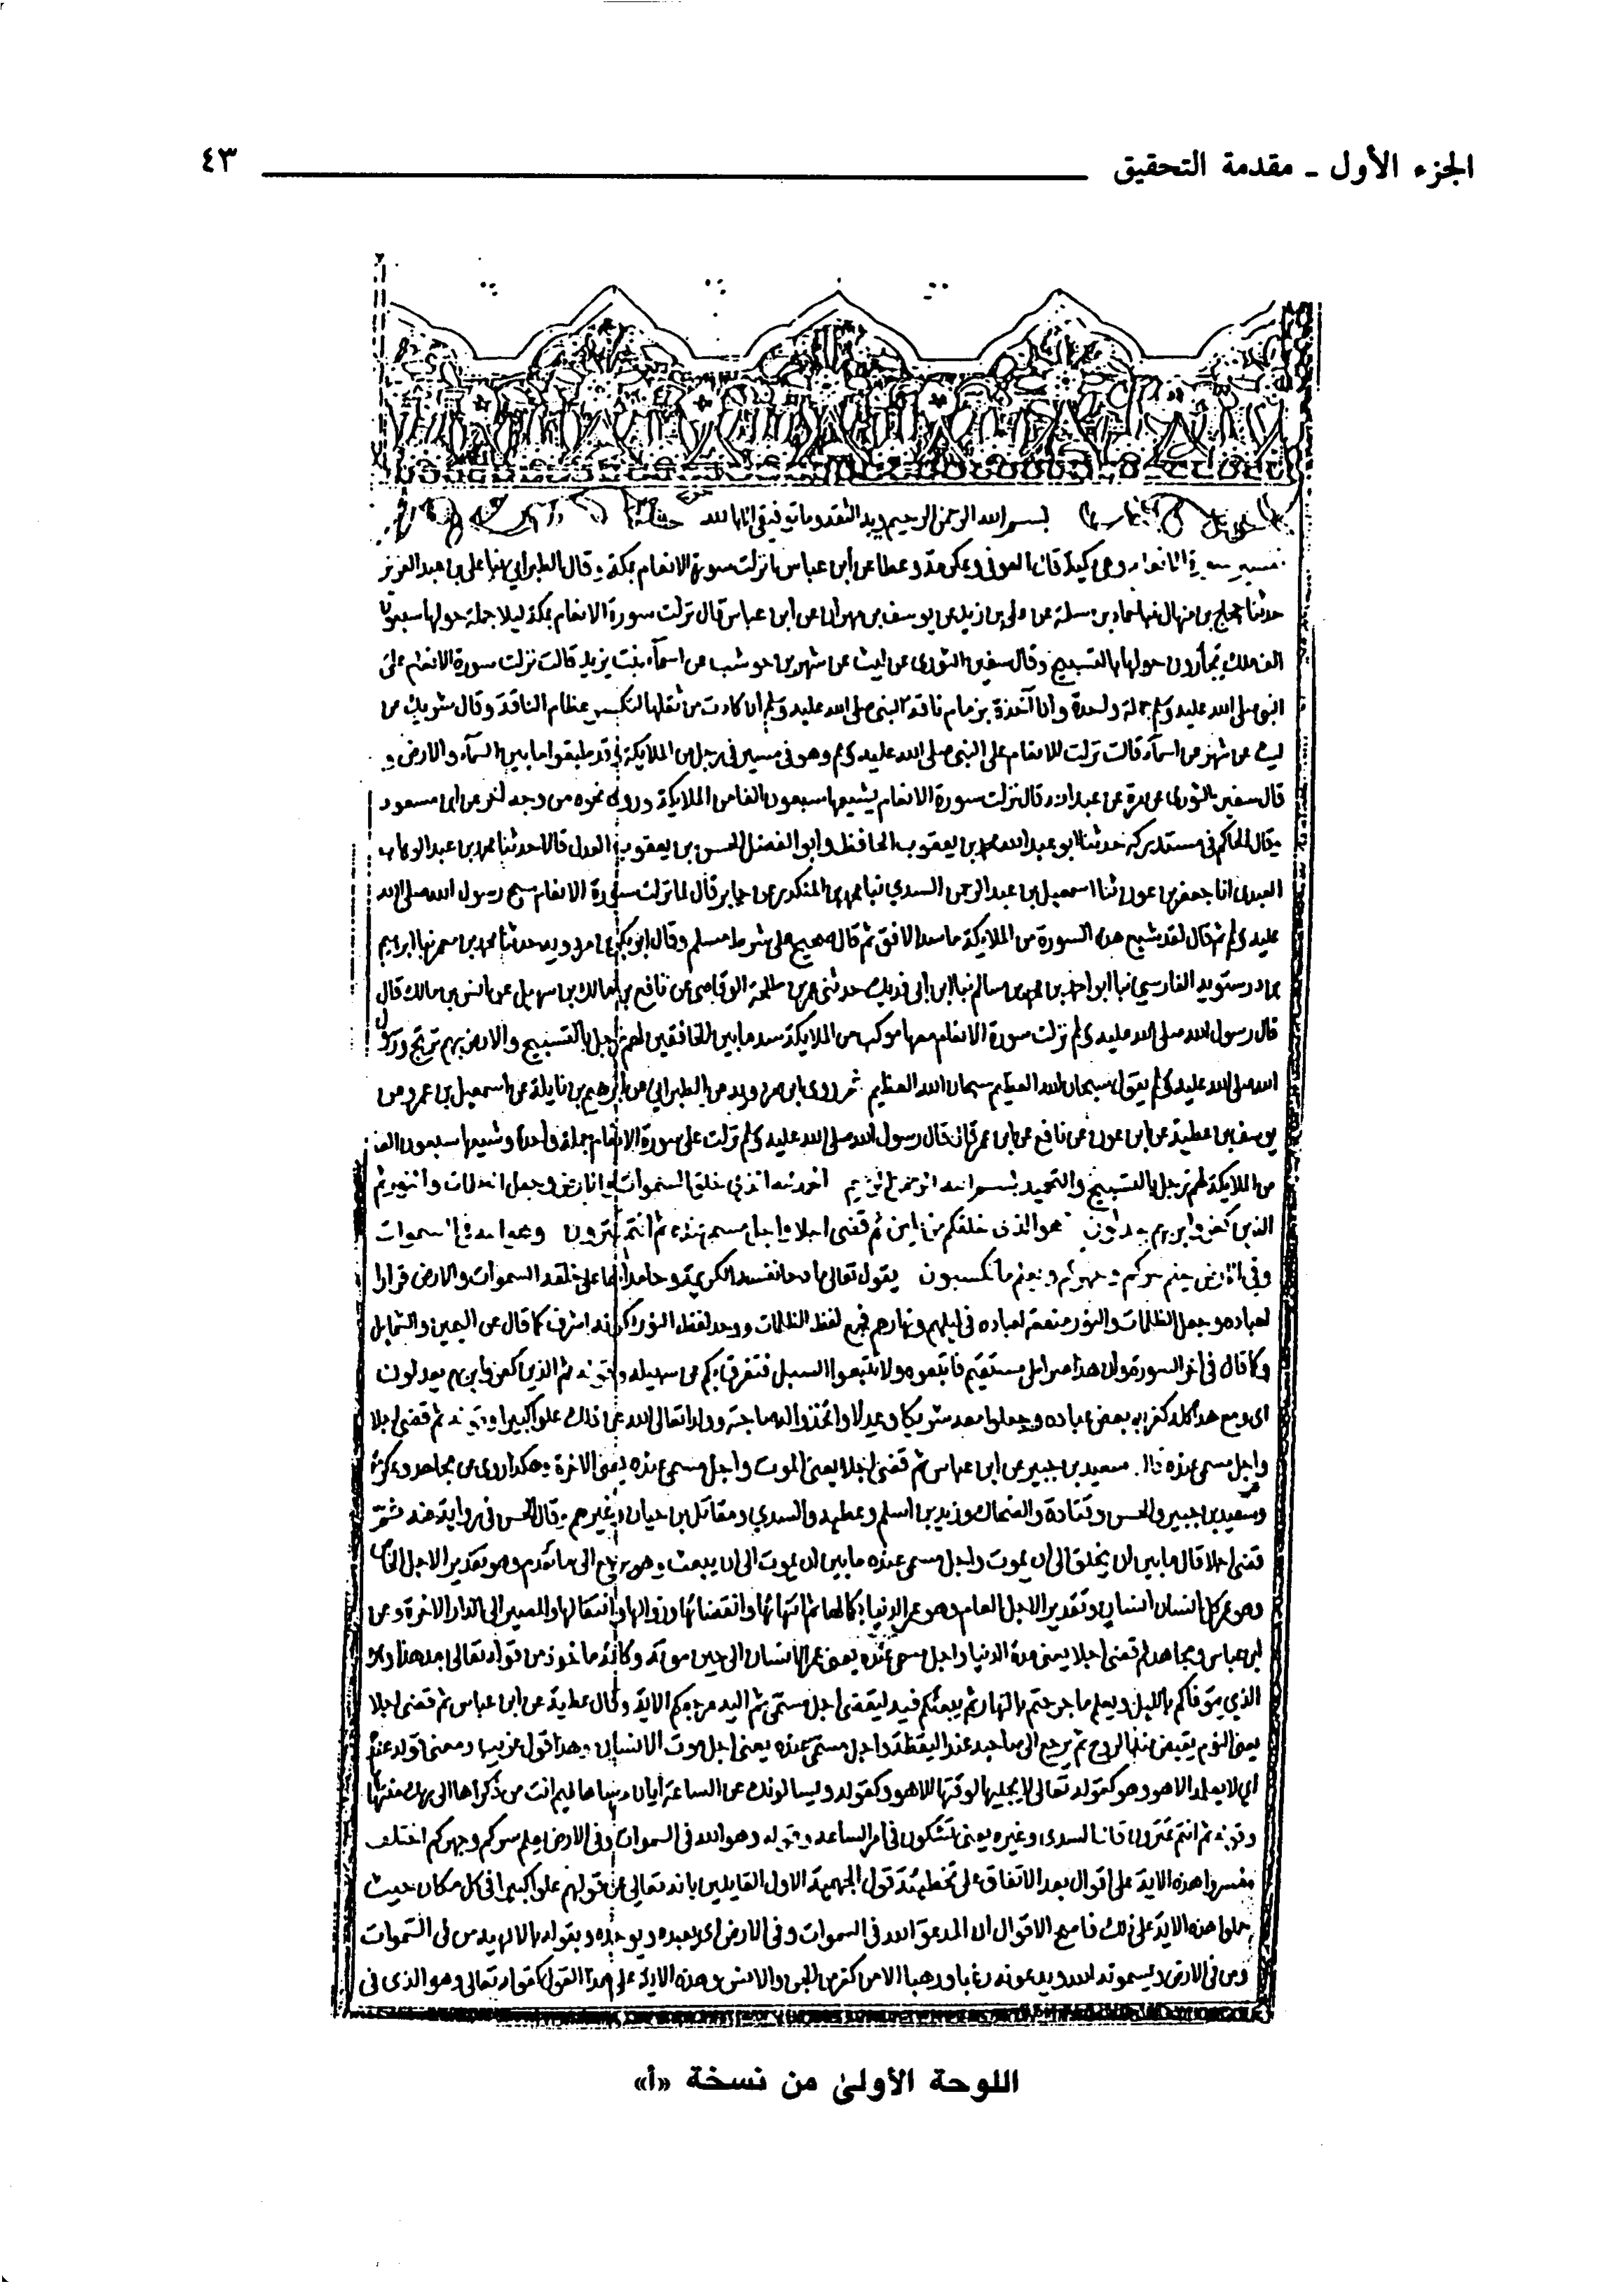 الجزء الأول - مقدمة التحقيق ٤٣
بسم الله الرحمن الرحيم وبه الثقة وما توفيقي الا بالله
تفسير سورة الانعام وهي مكية قال العوفي وعكرمة وعطا عن ابن عباس انزلت سورة الانعام بمكة وقال الطبراني ثنا علي بن عبد العزيز
حدثنا حجاج بن منهال ثنا حماد بن سلمة عن علي بن زيد عن يوسف بن مهران عن ابن عباس قال نزلت سورة الانعام بمكة ليلا جملة حولها سبعون
الف ملك يجأرون حولها بالتسبيح وقال سفين الثوري عن ليث عن شهر بن حوشب عن اسمآء بنت يزيد قالت نزلت سورة الانعام على
النبي صلى الله عليه وسلم جملة واحدة وانا آخذة بزمام ناقة النبي صلى الله عليه وسلم ان كادت من ثقلها لتكسر عظام الناقة وقال شريك عن
ليث عن شهر عن اسمآء قالت نزلت الانعام على النبي صلى الله عليه وسلم وهو في مسير في زجل من الملايكة وقد طبقوا ما بين السمآء والارض و
قال سفين الثوري عن مرة عن عبد الله قال نزلت سورة الانعام يشيعها سبعون الفا من الملايكة وروي نحوه من وجه اخر عن ابن مسعود
وقال الحاكم في مستدركه حدثنا ابو عبد الله محمد بن يعقوب الحافظ وابو الفضل الحسن بن يعقوب العدل قالا حدثنا محمد بن عبد الوهاب
العبدي انا جعفر بن عون ثنا اسمعيل بن عبد الرحمن السدي ثنا محمد بن المنكدر عن جابر قال لما نزلت سورة الانعام سبح رسول الله صلى الله
عليه وسلم ثم قال لقد شيع هذه السورة من الملايكة ما سد الافق ثم قال صحيح على شرط مسلم وقال ابو بكر بن مردويه حدثنا محمد بن معمر ثنا ابراهيم
بن درستويه الفارسي ثنا ابو بكر احمد بن محمد بن سالم ثنا ابن ابي فديك حدثني عمر بن طلحة الرقاشي عن نافع بن مالك بن سهيل عن انس بن مالك قال
قال رسول الله صلى الله عليه وسلم نزلت سورة الانعام معها موكب من الملايكة سد ما بين الخافقين لهم زجل بالتسبيح والارض بهم ترتج ورسول
الله صلى الله عليه وسلم يقول سبحان الله العظيم سبحان الله العظيم ثم روى ابن مردويه عن الطبراني عن ابرهيم بن نايلة عن اسمعيل بن عمرو عن
يوسف بن عطية عن ابن عون عن نافع عن ابن عمر قال قال رسول الله صلى الله عليه وسلم نزلت علي سورة الانعام جملة واحدة وشيعها سبعون الف
من الملايكة لهم زجل بالتسبيح والتحميد بسم الله الرحمن الرحيم الحمد لله الذي خلق السموات والارض وجعل الظلمات والنور ثم
الذين كفروا بربهم يعدلون هو الذي خلقكم من طين ثم قضى اجلا واجل مسمى عنده ثم انتم تمترون وهو الله في السموات
وفي الارض يعلم سركم وجهركم ويعلم ما تكسبون يقول تعالى مادحا نفسه الكريمة وحامدا لها على خلقه السموات والارض قرارا
لعباده وجعل الظلمات والنور منفعة لعباده في ليلهم ونهارهم فجمع لفظ الظلمات ووحد لفظ النور لكونه اشرف كما قال عن اليمين والشمايل
وكما قال في اخر السورة وان هذا صراطي مستقيم فاتبعوه ولا تتبعوا السبل فتفرق بكم عن سبيله وقوله ثم الذين كفروا بربهم يعدلون
اي ومع هذا كله كفر به بعض عباده وجعلوا معه شريكا وعدلا واتخذوا له صاحبة وولدا تعالى الله عن ذلك علوا كبيرا وقوله ثم قضى اجلا
واجل مسمى عنده قال سعيد بن جبير عن ابن عباس ثم قضى اجلا يعني الموت واجل مسمى عنده يعني الاخرة وهكذا روي عن مجاهد وعكرمة
وسعيد بن جبير والحسن وقتادة والضحاك وزيد بن اسلم وعطية والسدي ومقاتل بن حيان وغيرهم وقال الحسن في رواية عنه ثم
قضى اجلا قال ما بين ان يخلق الى ان يموت واجل مسمى عنده ما بين ان يموت الى ان يبعث وهو يرجع الى ما تقدم وهو تقدير الاجل الخاص
وهو عمر كل انسان انسان وتقدير الاجل العام وهو عمر الدنيا بكمالها ثم انتهائها وانقضائها وزوالها وانتقالها والمصير الى الدار الاخرة وعن
ابن عباس ومجاهد ثم قضى اجلا يعني مدة الدنيا واجل مسمى عنده يعني عمر الانسان الى حين موته وكأنه ماخوذ من قوله تعالى بعد هذا وهو
الذي يتوفاكم بالليل ويعلم ما جرحتم بالنهار ثم يبعثكم فيه ليقضى اجل مسمى ثم اليه مرجعكم الاية وقال عطية عن ابن عباس ثم قضى اجلا
يعني النوم يقبض فيه الروح ثم يرجع الى صاحبه عند اليقظة واجل مسمى عنده يعني اجل موت الانسان وهذا قول غريب ومعنى قوله عنده
اي لا يعلمه الا هو وهو كقوله تعالى لا يجليها لوقتها الا هو وكقوله ويسالونك عن الساعة ايان مرساها فيم انت من ذكراها الى ربك منتهاها
وقوله ثم انتم تمترون قال السدي وغيره يعني تشكون في امر الساعة وقوله وهو الله في السموات وفي الارض يعلم سركم وجهركم اختلف
مفسروا هذه الاية على اقوال بعد الاتفاق على تخطئة قول الجهمية الاول القايلين بانه تعالى عن قولهم علوا كبيرا في كل مكان حيث
حملوا هذه الاية على ذلك فاصح الاقوال ان المدعو الله في السموات وفي الارض اي يعبده ويوحده ويقر له بالالهية من في السموات
ومن في الارض ويسمونه الله ويدعونه رغبا ورهبا الا من كفر من الجن والانس وهذه الاية على هذا القول كقوله تعالى وهو الذي في
اللوحة الأولى من نسخة «أ»